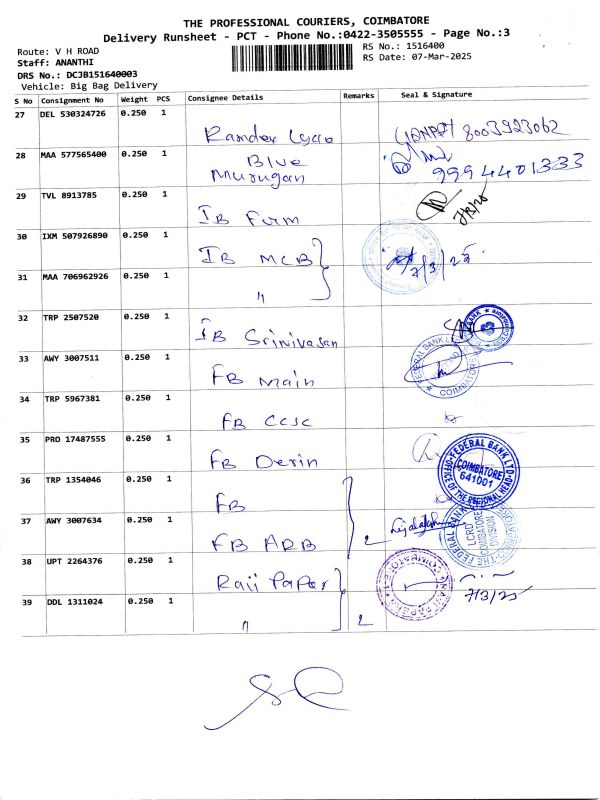 THE PROFESSIONAL COURIERS, COIMBATORE
Delivery Runsheet - PCT - Phone No.:0422-3505555 - Page No.:3
Route: V H ROAD
RS No.: 1516400
Staff: ANANTHI
RS Date: 07-Mar-2025
DRS No.: DCJB151640003
Vehicle: Big Bag Delivery
S No Consignment No Weight PCS Consignee Details Remarks Seal & Signature
27 DEL 530324726 0.250 1 8003923062
28 MAA 577565400 0.250 1 Blue Murugan 9994401333
29 TVL 8913785 0.250 1 IB Firm 7/3/25
30 IXM 507926890 0.250 1 IB MCB 7/3/25
31 MAA 706962926 0.250 1 "
32 TRP 2507520 0.250 1 IB Srinivasan
33 AWY 3007511 0.250 1 FB Main FEDERAL BANK LTD COIMBATORE
34 TRP 5967381 0.250 1 FB CCSC
35 PRO 17487555 0.250 1 FB Derin FEDERAL BANK LTD. OFFICE OF THE REGIONAL HEAD COIMBATORE 641001
36 TRP 1354046 0.250 1 FB
37 AWY 3007634 0.250 1 FB ARB 2 THE FEDERAL BANK LCRD COIMBATORE DIVISION
38 UPT 2264376 0.250 1 Raji Paper 7/3/25
39 DDL 1311024 0.250 1 " 2